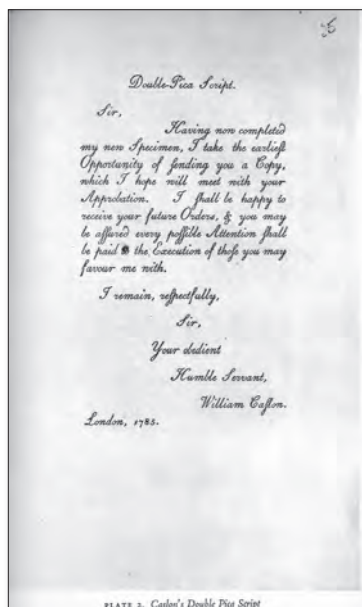 Double-Pica Script.
Sir,
Having now completed
my new Specimen, I take the earliest
Opportunity of ſending you a Copy,
which I hope will meet with your
Approbation. I ſhall be happy to
receive your future Orders, & you may
be aſſured every poſſible Attention ſhall
be paid the Execution of thoſe you may
favour me with.
I remain, reſpectfully,
Sir,
Your obedient
Humble Servant,
William Caſlon.
London, 1785.
PLATE 2. Caslon's Double Pica Script